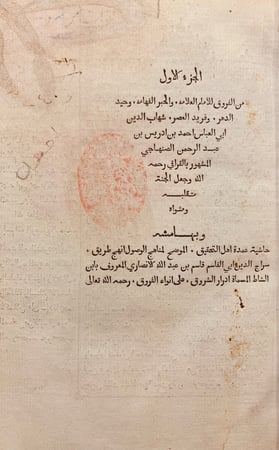 الجزء الاول
من الفروق للامام العلامه والحبر الفهامه وحيد
الدهر وفريد العصر شهاب الدين
ابي العباس احمد بن ادريس بن
عبد الرحمن الصنهاجي
المشهور بالقرافي رحمه
الله وجعل الجنة
منقلبه
ومثواه
وبهامشه
حاشية عمدة اهل التحقيق ٠ الموضح لمناهج الوصول انهج طريق ٠
سراج الدين ابي القاسم قاسم بن عبد الله الانصاري المعروف بابن
الشاط المسماة ادرار الشروق ٠ على انواء الفروق ٠ رحمه الله تعالى